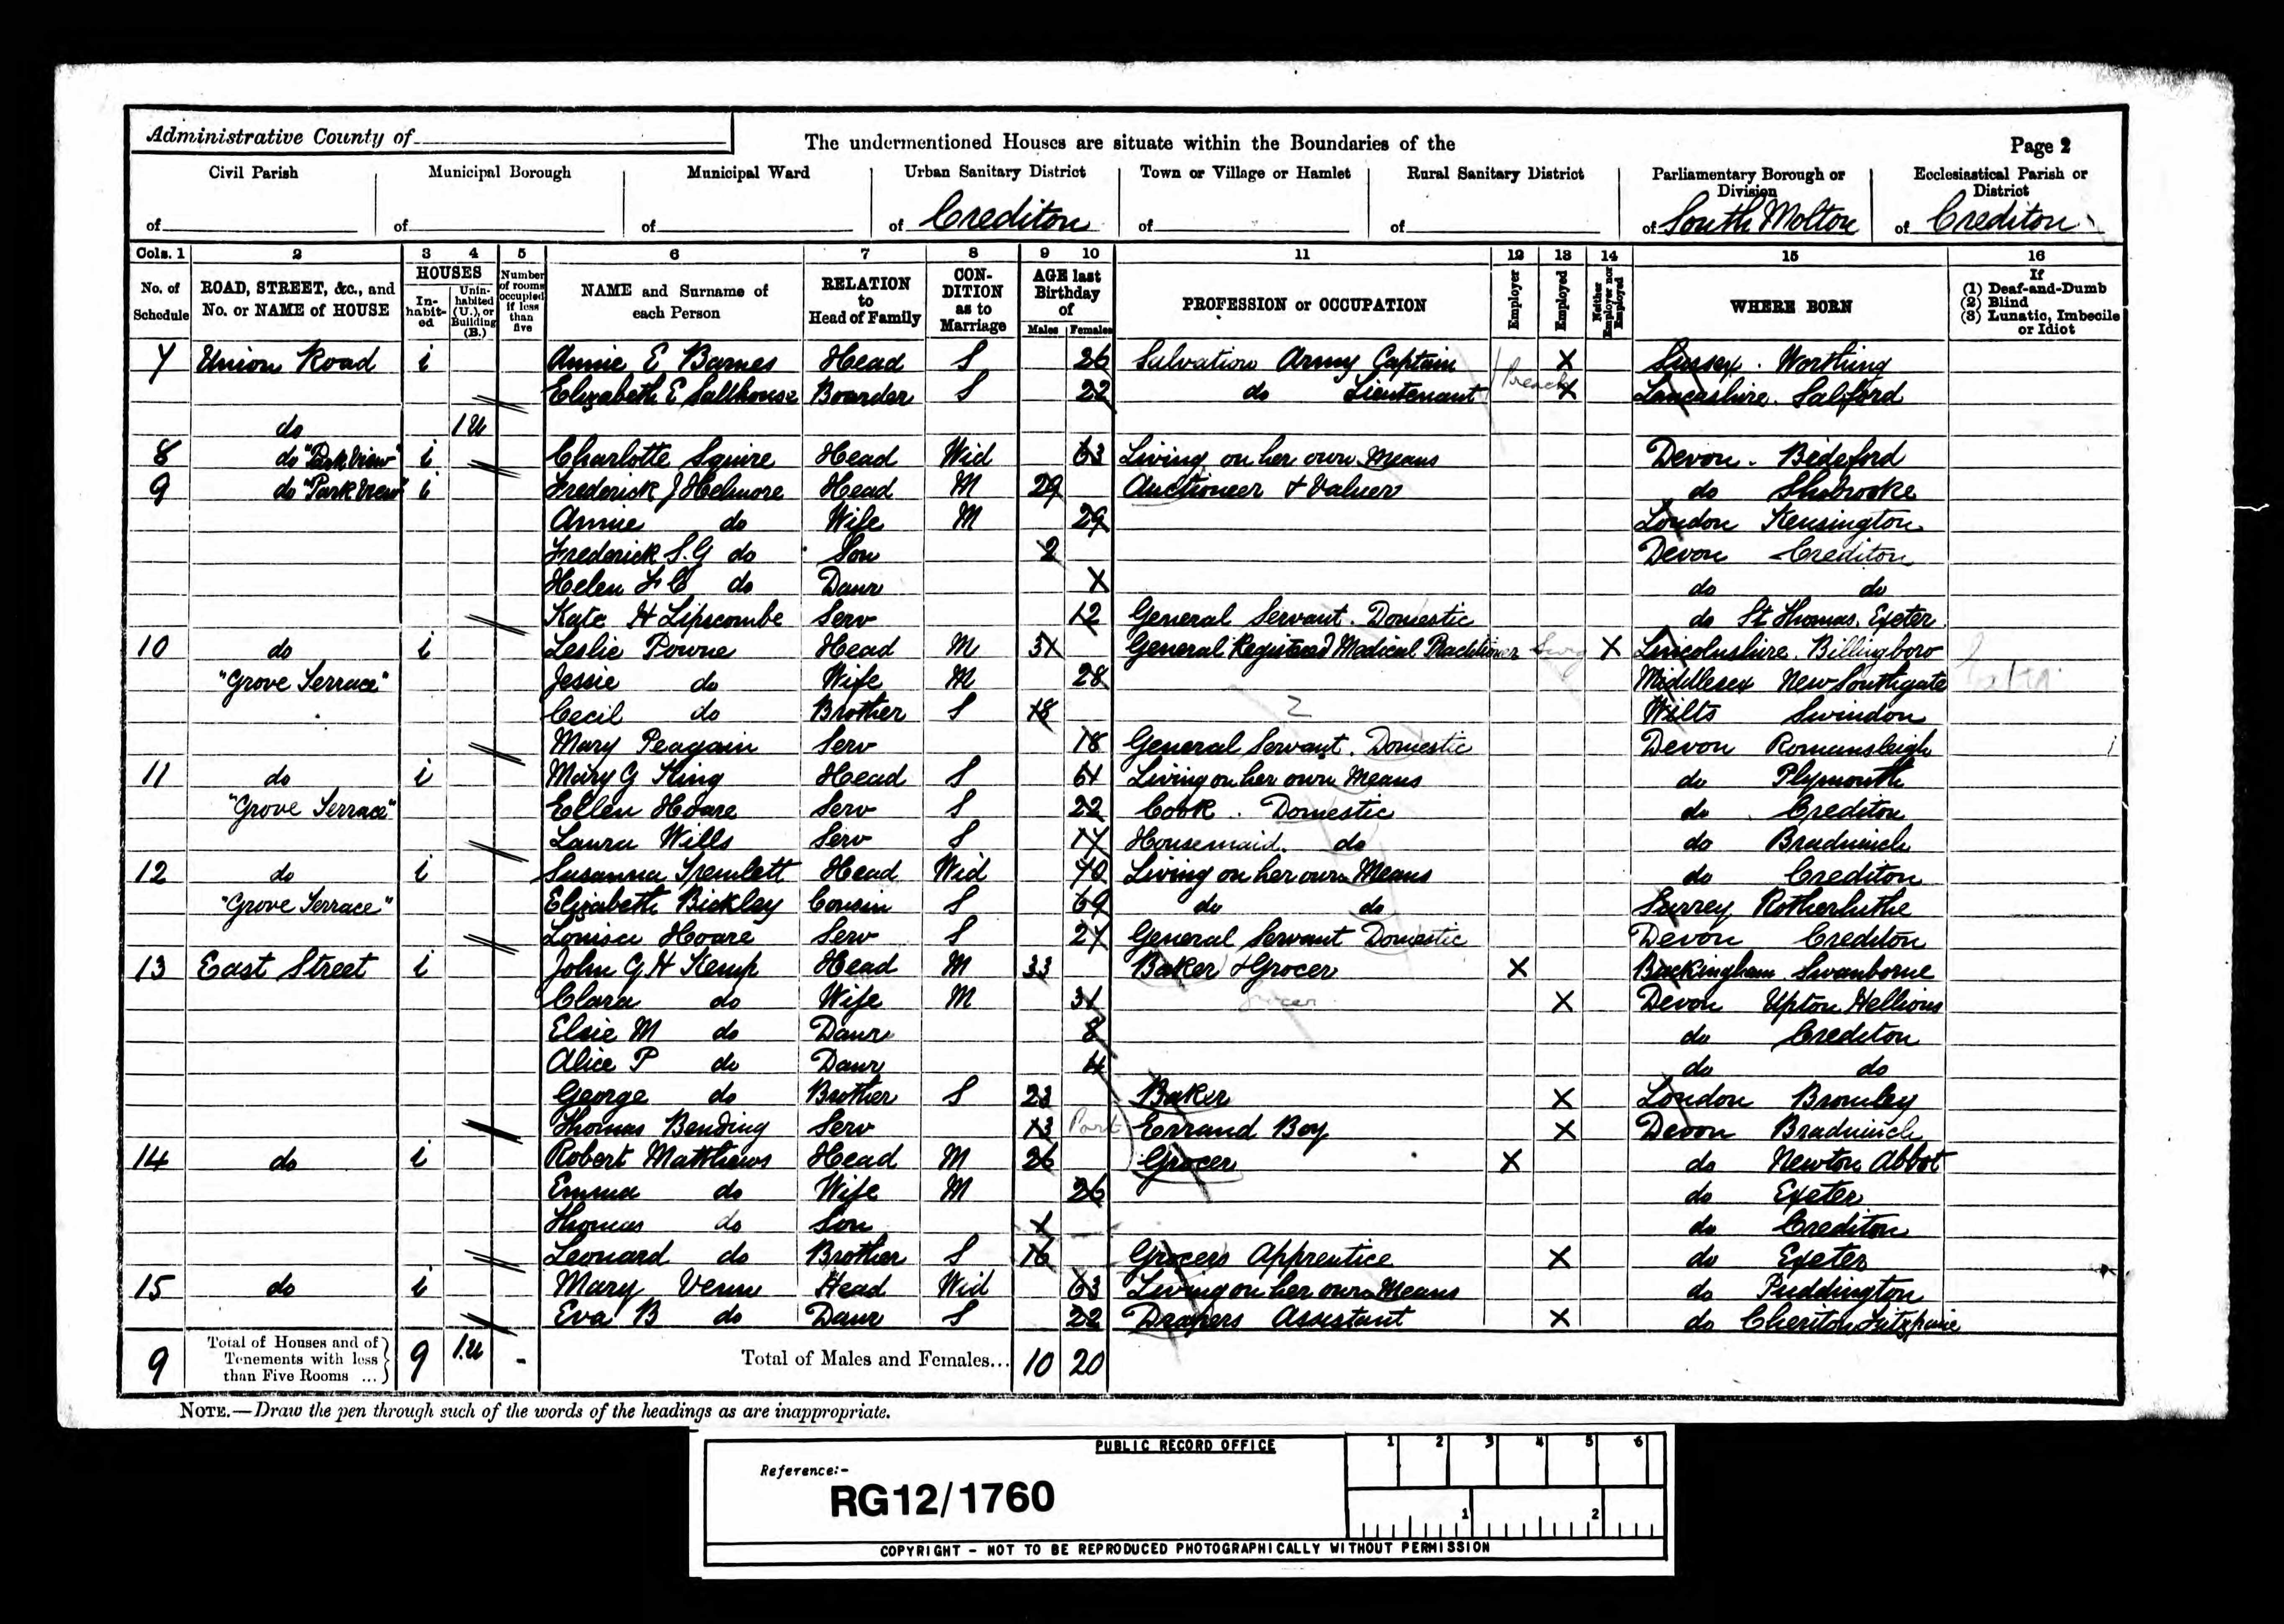 Administrative County of
The undermentioned Houses are situate within the Boundaries of the
Page 2
Civil Parish of
Municipal Borough of
Municipal Ward of
Urban Sanitary District of Crediton
Town or Village or Hamlet of
Rural Sanitary District of
Parliamentary Borough or Division of South Molton
Ecclesiastical Parish or District of Crediton
Cols. 1 2 3 4 5 6 7 8 9 10 11 12 13 14 15 16
No. of Schedule
ROAD, STREET, &c., and No. or NAME of HOUSE
HOUSES
Inhabited
Uninhabited (U.), or Building (B.)
Number of rooms occupied if less than five
NAME and Surname of each Person
RELATION to Head of Family
CONDITION as to Marriage
AGE last Birthday of
Males Females
PROFESSION or OCCUPATION
Employer
Employed
Neither Employer nor Employed
WHERE BORN
If
(1) Deaf-and-Dumb
(2) Blind
(3) Lunatic, Imbecile or Idiot
7 Union Road i Annie E Barnes Head S 26 Salvation Army Captain X Sussex. Worthing
Elizabeth E Sallhouse Boarder S 22 do Lieutenant X Lancashire. Salford
do 1 U
8 do "Park View" i Charlotte Squire Head Wid 63 Living on her own Means Devon. Bideford
9 do "Park View" i Frederick J Helmore Head M 29 Auctioneer & Valuer do Shobrooke
Annie do Wife M 29 London Kensington
Frederick S.G do Son 2 Devon Crediton
Helen do Daur do do
Kate H Lipscombe Serv 12 General Servant. Domestic do St Thomas. Exeter
10 do i Leslie Powne Head M 31 General Registered Medical Practitioner X Lincolnshire. Billingboro
"Grove Terrace" Jessie do Wife M 28 Middlesex New Southgate
Cecil do Brother S 18 Wilts Swindon
Mary Peagain Serv 18 General Servant. Domestic Devon Romansleigh
11 do i Mary G King Head S 61 Living on her own Means do Plymouth
"Grove Terrace" Ellen Hoare Serv S 22 Cook. Domestic do Crediton
Laura Wills Serv S 17 Housemaid. do do Bradninch
12 do i Susanna Tremlett Head Wid 70 Living on her own Means do Crediton
"Grove Terrace" Elizabeth Bickley Cousin S 69 do do Surrey Rotherhithe
Louisa Hoare Serv S 27 General Servant Domestic Devon Crediton
13 East Street i John G H Kemp Head M 33 Baker & Grocer X Buckingham Swanborne
Clara do Wife M 31 Grocer X Devon Upton Hellions
Elsie M do Daur 8 do Crediton
Alice P do Daur 4 do do
George do Brother S 23 Baker X London Bromley
Thomas Bending Serv 13 Errand Boy X Devon Bradninch
14 do i Robert Matthews Head M 26 Grocer X do Newton Abbot
Emma do Wife M 26 do Exeter
Thomas do Son 1 do Crediton
Leonard do Brother S 16 Grocers Apprentice X do Exeter
15 do i Mary Venn Head Wid 63 Living on her own Means do Puddington
Eva B do Daur S 22 Drapers Assistant X do Cheriton Fitzpaine
9 Total of Houses and of Tenements with less than Five Rooms ... 9 1.U - Total of Males and Females... 10 20
NOTE.—Draw the pen through such of the words of the headings as are inappropriate.
PUBLIC RECORD OFFICE
1 2 3 4 5 6
Reference:-
RG12/1760
1 2
COPYRIGHT - NOT TO BE REPRODUCED PHOTOGRAPHICALLY WITHOUT PERMISSION